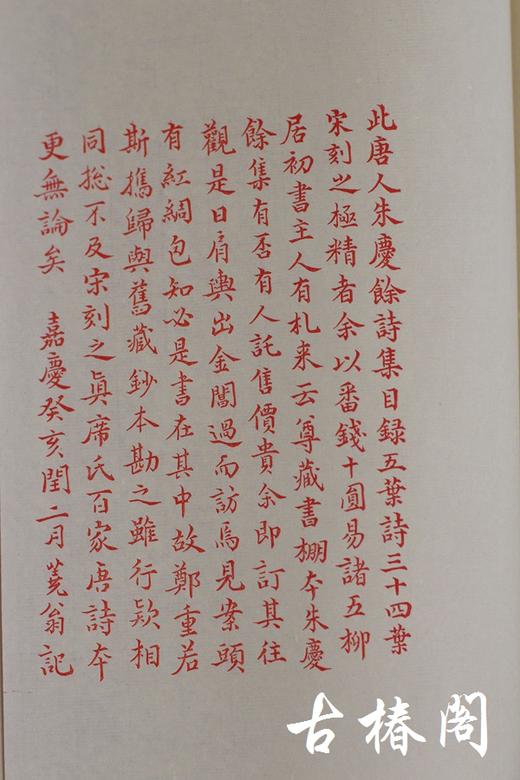 此唐人朱慶餘詩集目録五葉詩三十四葉
宋刻之極精者余以番錢十圓易諸五柳
居初書主人有札来云尊藏書棚夲朱慶
餘集有否有人託售價貴余即訂其往
觀是日肩輿出金閶過而訪焉見案頭
有紅綢包知必是書在其中故鄭重若
斯攜歸與舊藏鈔本勘之雖行欵相
同揔不及宋刻之眞席氏百家唐詩夲
更無論矣 嘉慶癸亥閏二月蕘翁記
古椿閣